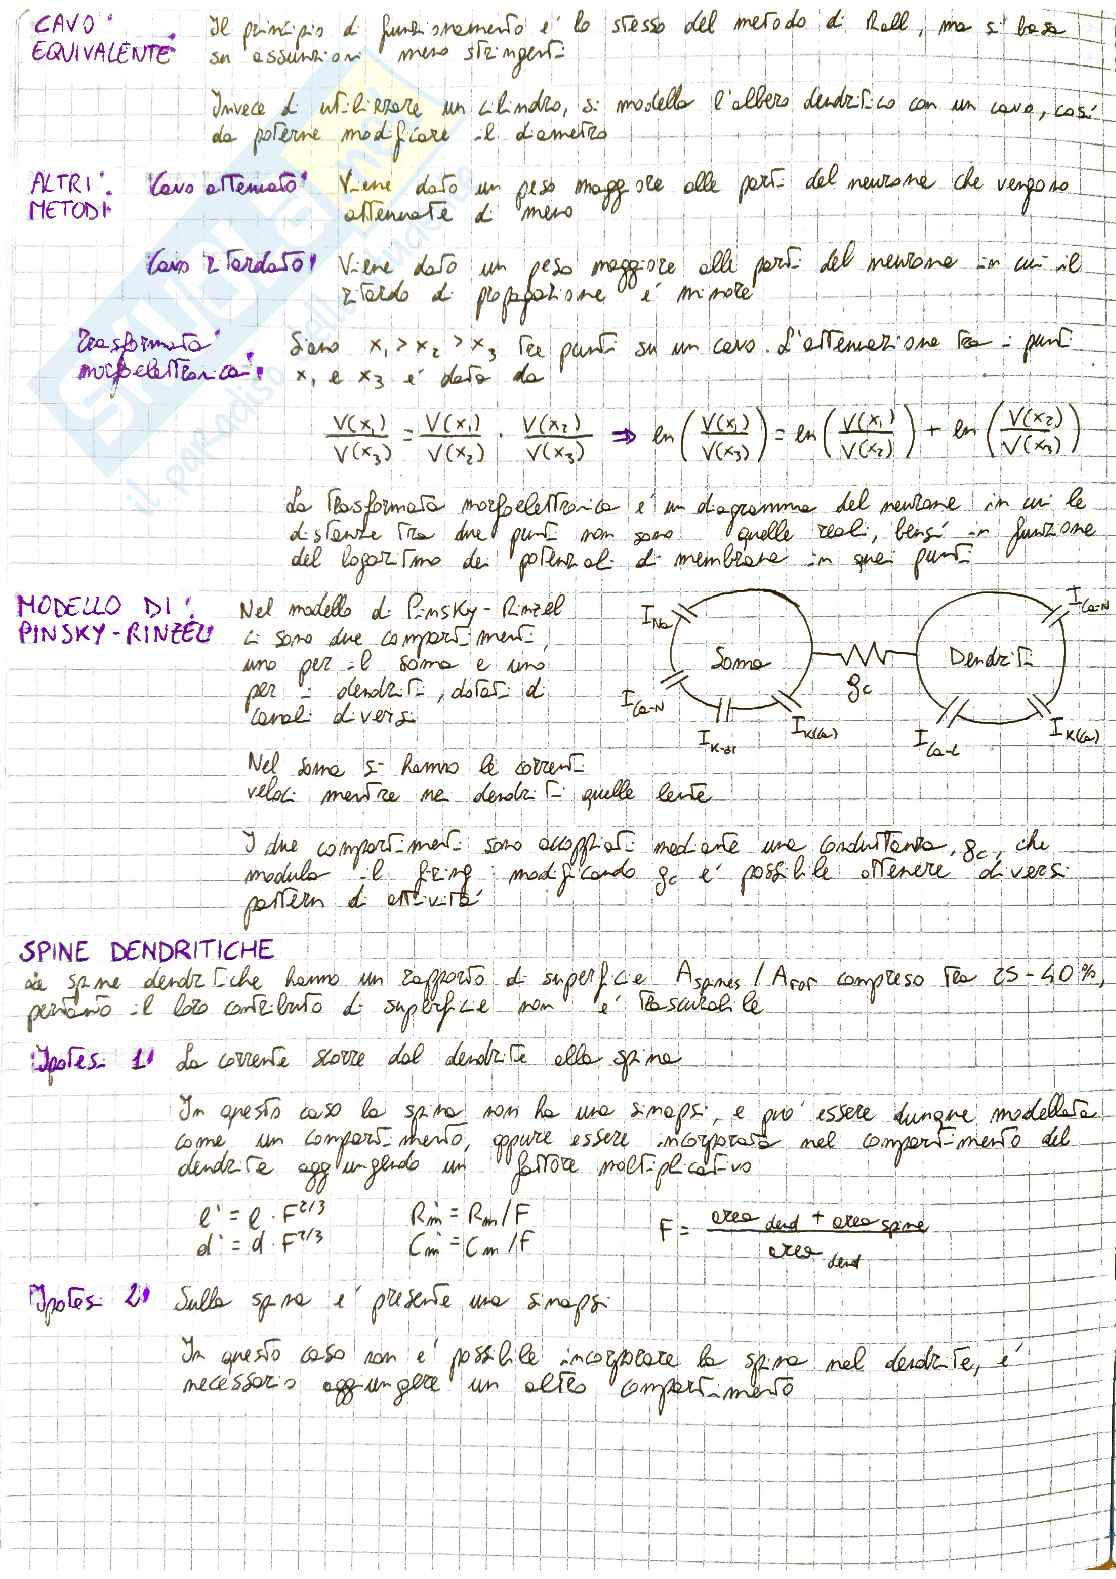 CAVO EQUIVALENTE: Il principio di funzionamento è lo stesso del metodo di Rall, ma si basa
su assunzioni meno stringenti
Invece di utilizzare un cilindro, si modella l'albero dendritico con un cavo, così
da poterne modificare il diametro
ALTRI METODI: Cavo attenuato: Viene dato un peso maggiore alle parti del neurone che vengono
attenuate di meno
Cavo ritardato: Viene dato un peso maggiore alle parti del neurone in cui il
ritardo di propagazione è minore
Trasformata morfoelettronica: Siano x₁ > x₂ > x₃ tre punti su un cavo. L'attenuazione tra i punti
x₁ e x₃ è data da
V(x₁)/V(x₃) = V(x₁)/V(x₂) · V(x₂)/V(x₃) ⇒ ln(V(x₁)/V(x₃)) = ln(V(x₁)/V(x₂)) + ln(V(x₂)/V(x₃))
La trasformata morfoelettronica è un diagramma del neurone in cui le
distanze tra due punti non sono quelle reali, bensì in funzione
del logaritmo dei potenziali di membrana in quei punti
MODELLO DI PINSKY-RINZEL: Nel modello di Pinsky-Rinzel
ci sono due compartimenti,
uno per il soma e uno
per i dendriti, dotati di
canali diversi
I Na
I Ca-N
Soma
Dendriti
gc
I Ca-N
I K-DR
I K(Ca)
I Ca-L
I K(Ca)
Nel soma si hanno le correnti
veloci mentre nei dendriti quelle lente
I due compartimenti sono accoppiati mediante una conduttanza, gc, che
modula il firing: modificando gc è possibile ottenere diversi
pattern di attività
SPINE DENDRITICHE
Le spine dendritiche hanno un rapporto di superficie A spines / A TOT compreso tra 25-40%,
pertanto il loro contributo di superficie non è trascurabile
Ipotesi 1: La corrente scorre dal dendrite alla spina
In questo caso la spina non ha una sinapsi, e può essere dunque modellata
come un compartimento, oppure essere incorporata nel compartimento del
dendrite aggiungendo un fattore moltiplicativo
l' = l · F^2/3 Rm' = Rm/F F = (area dend + area spine) / area dend
d' = d · F^2/3 Cm' = Cm/F
Ipotesi 2: Sulla spina è presente una sinapsi
In questo caso non è possibile incorporare la spina nel dendrite, è
necessario aggiungere un altro compartimento